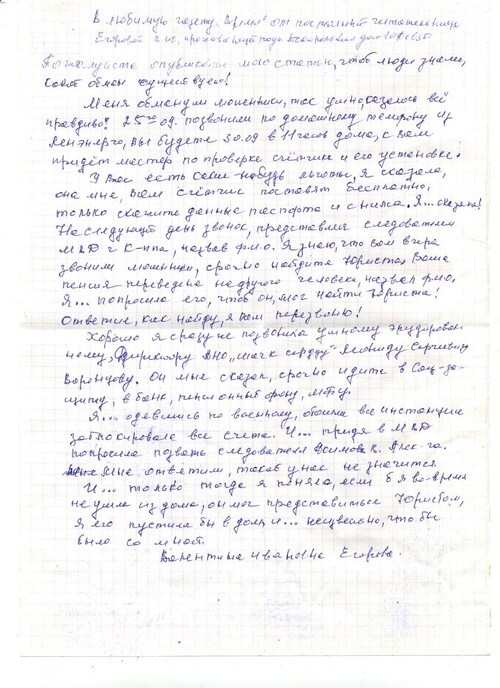 В любимую газету „Время“ от постоянной читательницы
Егоровой В.И., проживающей дом
Пожалуйста опубликовать мою статью, чтоб люди знали,
какой обман существует!
Меня обманули мошенники, так умно казалось всё
правдиво! 25го 09. позвонили по домашнему телефону из
Ленэнерго, Вы будете 30.09 в 11 часов дома, к Вам
придёт мастер по проверке счётчика и его установке.
У Вас есть какие-нибудь льготы, я сказала,
она мне, Вам счётчик поставят бесплатно,
только скажите данные паспорта и снилса. Я... сказала!
На следующий день звонок, представился следователем
МВД г К-ппа, назвав ф.и.о. Я знаю, что Вам вчера
звонили мошенники, срочно найдите Юриста, Ваша
пенсия переведена на другого человека, назвал ф.и.о.
Я... попросила его, чтоб он, мог найти Юриста!
Ответил, как найду, я Вам перезвоню!
Хорошо я сразу же позвонила умному эрудирован
ному, Директору АНО „Шаг к сердцу“ Леониду Сергеевичу
Воронцову. Он мне сказал, срочно идите в Соц-за-
щиту, в банк, пенсионный фонд, МФЦ.
Я... одевшись по военному, обошла все инстанции
заблокировала все счета. И... придя в МВД
попросила позвать следователя В. Алек-ча.
Мне ответили, такой у нас не значится
И... только тогда я поняла, если б я во-время
не ушла из дома, он мог представиться Юристом,
я его пустила бы в дом, и... неизвестно, что бы
было со мной.
Валентина Ивановна Егорова.